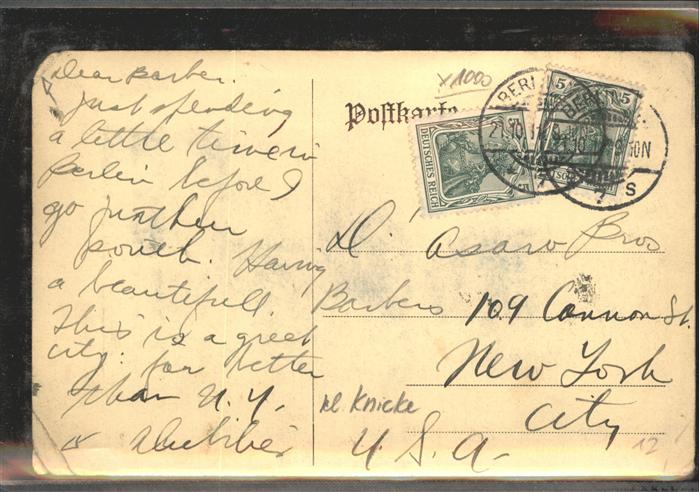 Dear Barber.
Just spending
a little time in
Berlin before I
go further
south. Having
a beautifull
this is a great
city. far better
than N.Y.
x 1000
Postkarte
DEUTSCHES REICH
5 5
BERLIN
21.10
10N
S
D'Asaro Bros
Barbers 109 Cannon St.
New York
City
U.S.A.
kl. Knicke
12